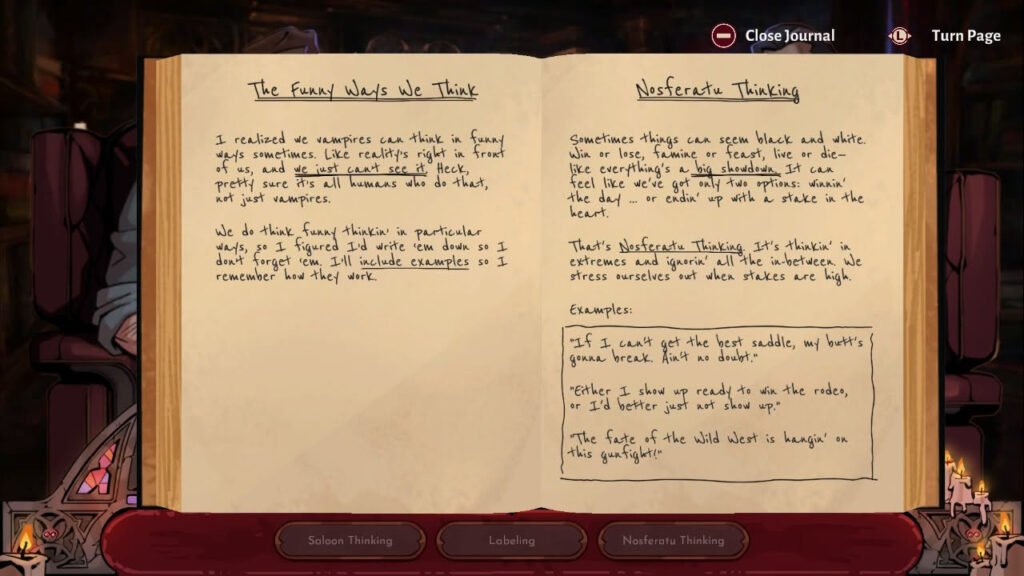 Close Journal
L Turn Page
The Funny Ways We Think
I realized we vampires can think in funny
ways sometimes. Like reality's right in front
of us, and we just can't see it. Heck,
pretty sure it's all humans who do that,
not just vampires.
We do think funny thinkin' in particular
ways, so I figured I'd write 'em down so I
don't forget 'em. I'll include examples so I
remember how they work.
Nosferatu Thinking
Sometimes things can seem black and white.
Win or lose, famine or feast, live or die—
like everything's a big showdown. It can
feel like we've got only two options: winnin'
the day ... or endin' up with a stake in the
heart.
That's Nosferatu Thinking. It's thinkin' in
extremes and ignorin' all the in-between. We
stress ourselves out when stakes are high.
Examples:
"If I can't get the best saddle, my butt's
gonna break. Ain't no doubt."
"Either I show up ready to win the rodeo,
or I'd better just not show up."
"The fate of the Wild West is hangin' on
this gunfight!"
Saloon Thinking
Labeling
Nosferatu Thinking